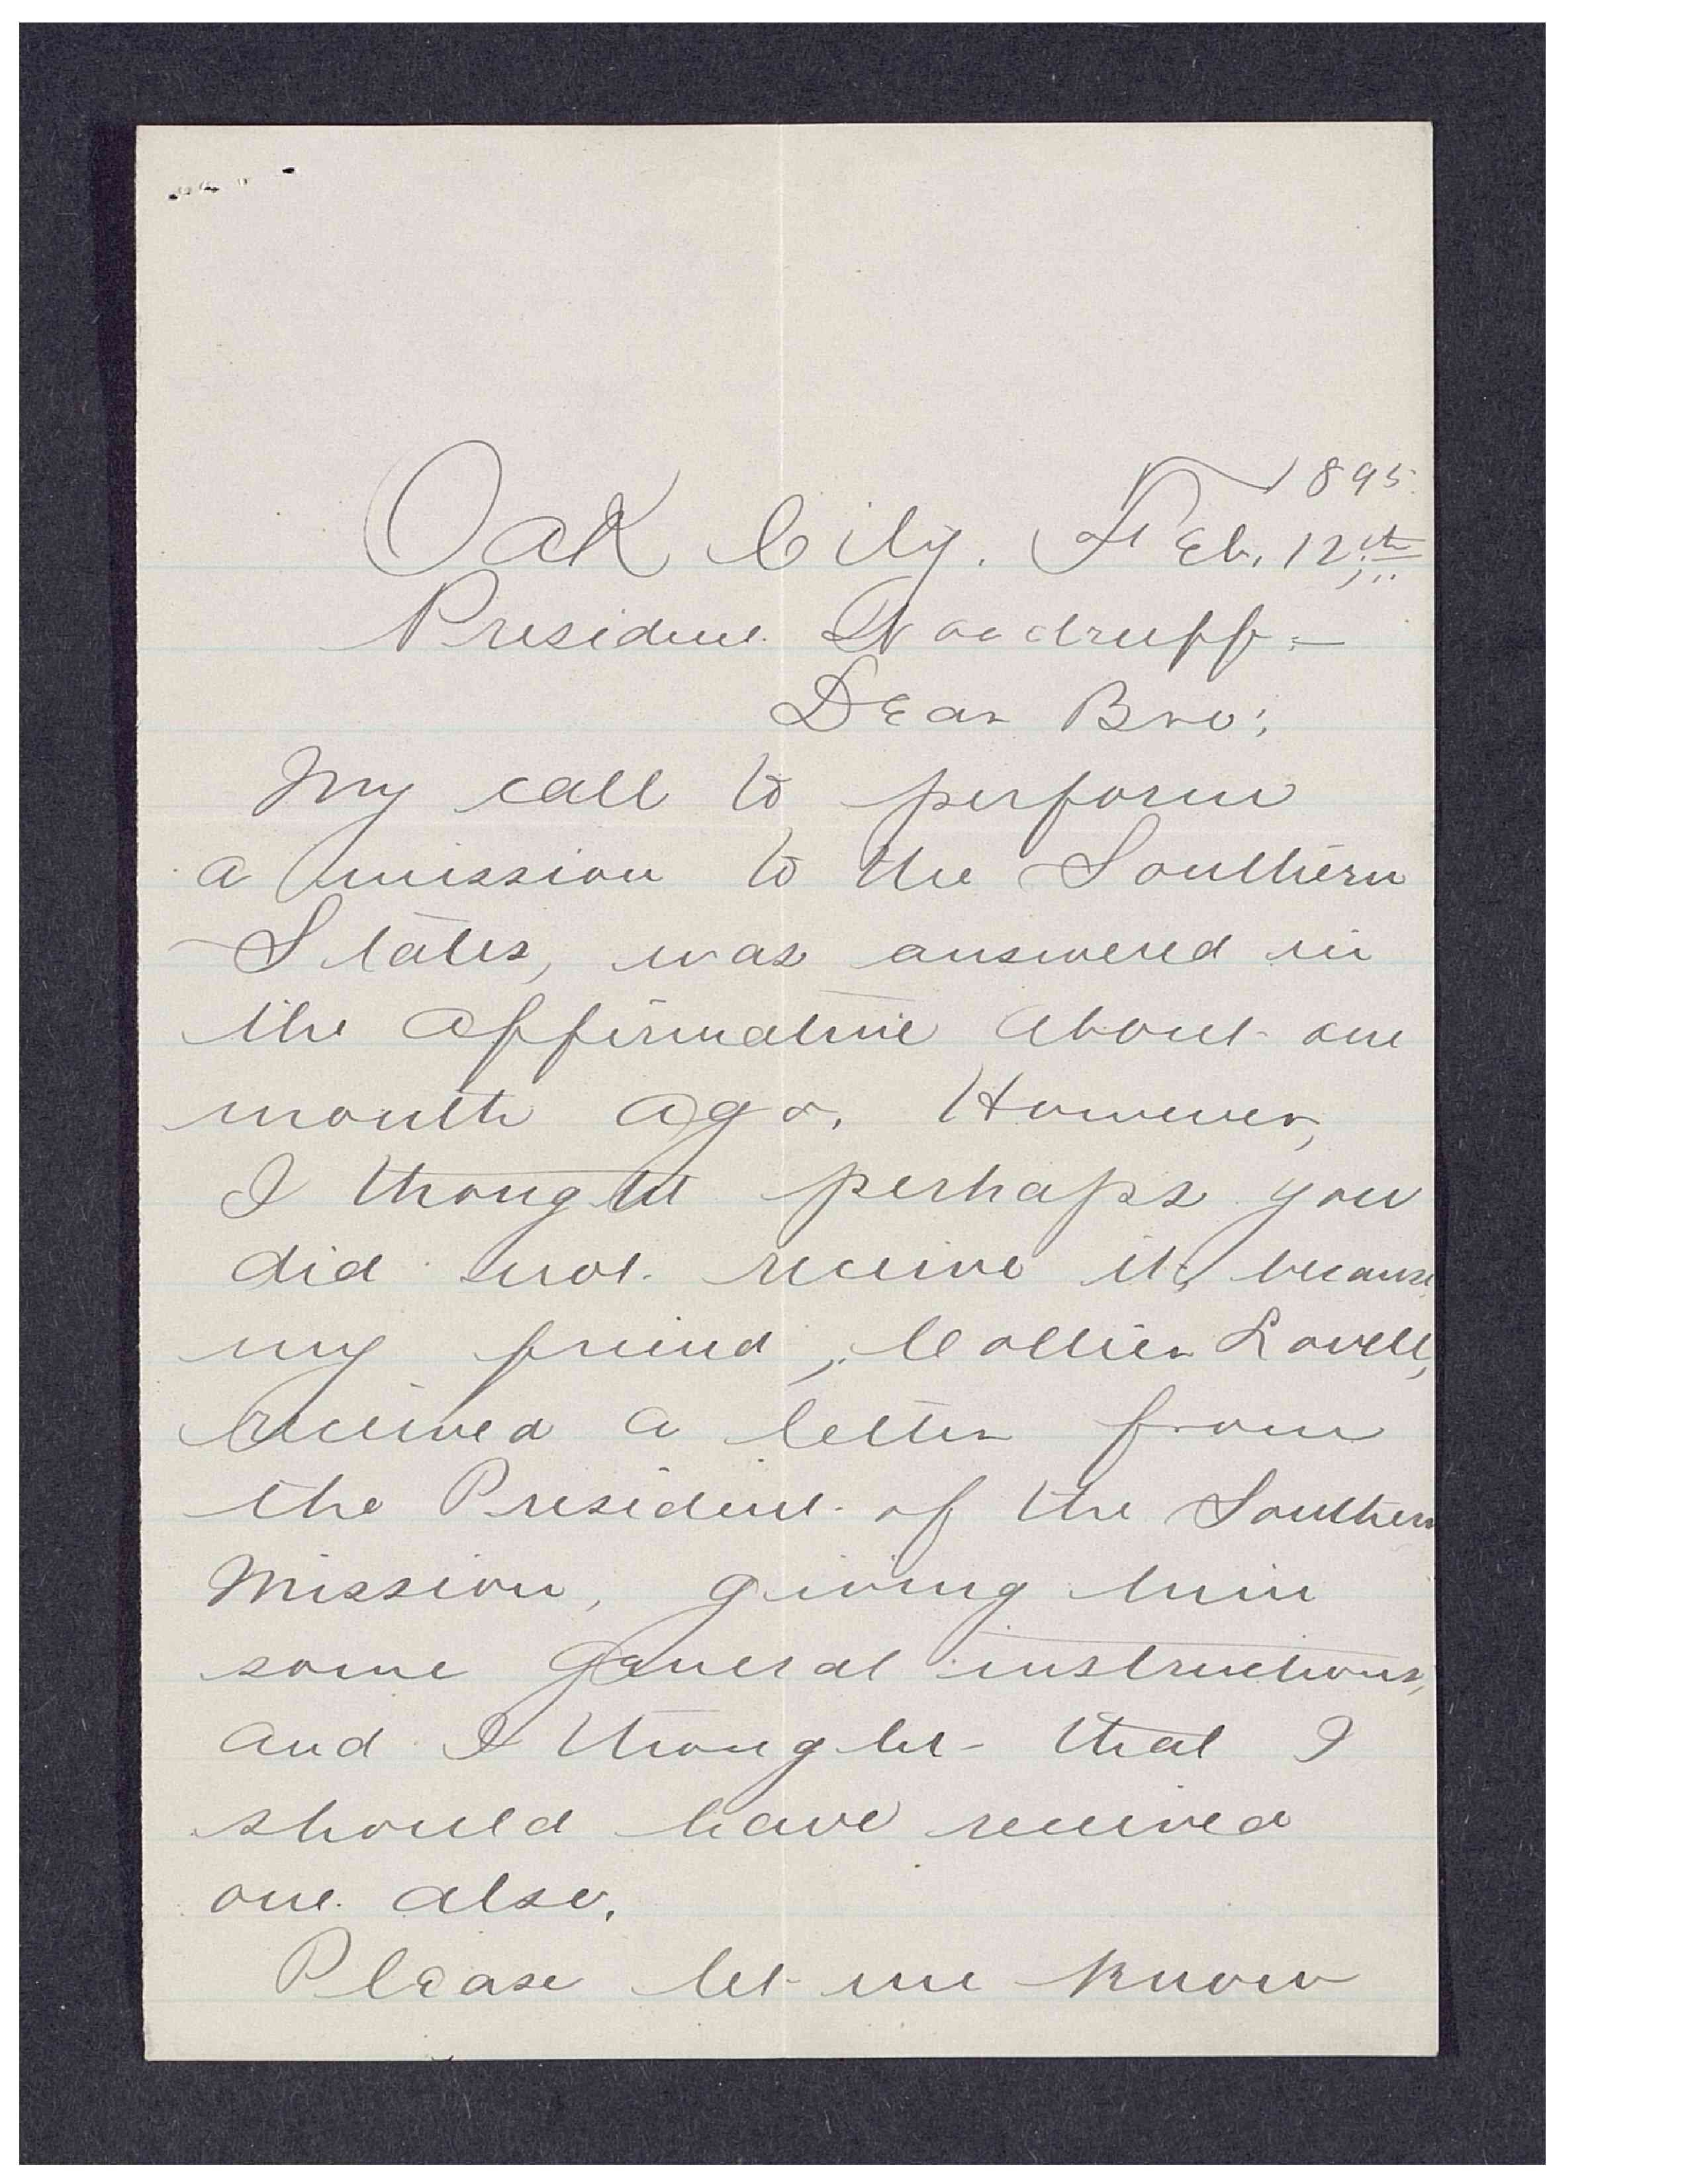 1895.
Oak City. Feb. 12th
President Woodruff.—
Dear Bro:,
My call to perform
a mission to the Southern
States, was answered in
the affirmative about one
month ago. However,
I thought perhaps you
did not receive it, because
my friend, Collier Lovell,
received a letter from
the President of the Southern
Mission, giving him
some general instructions,
and I thought that I
should have received
one also.
Please let me know